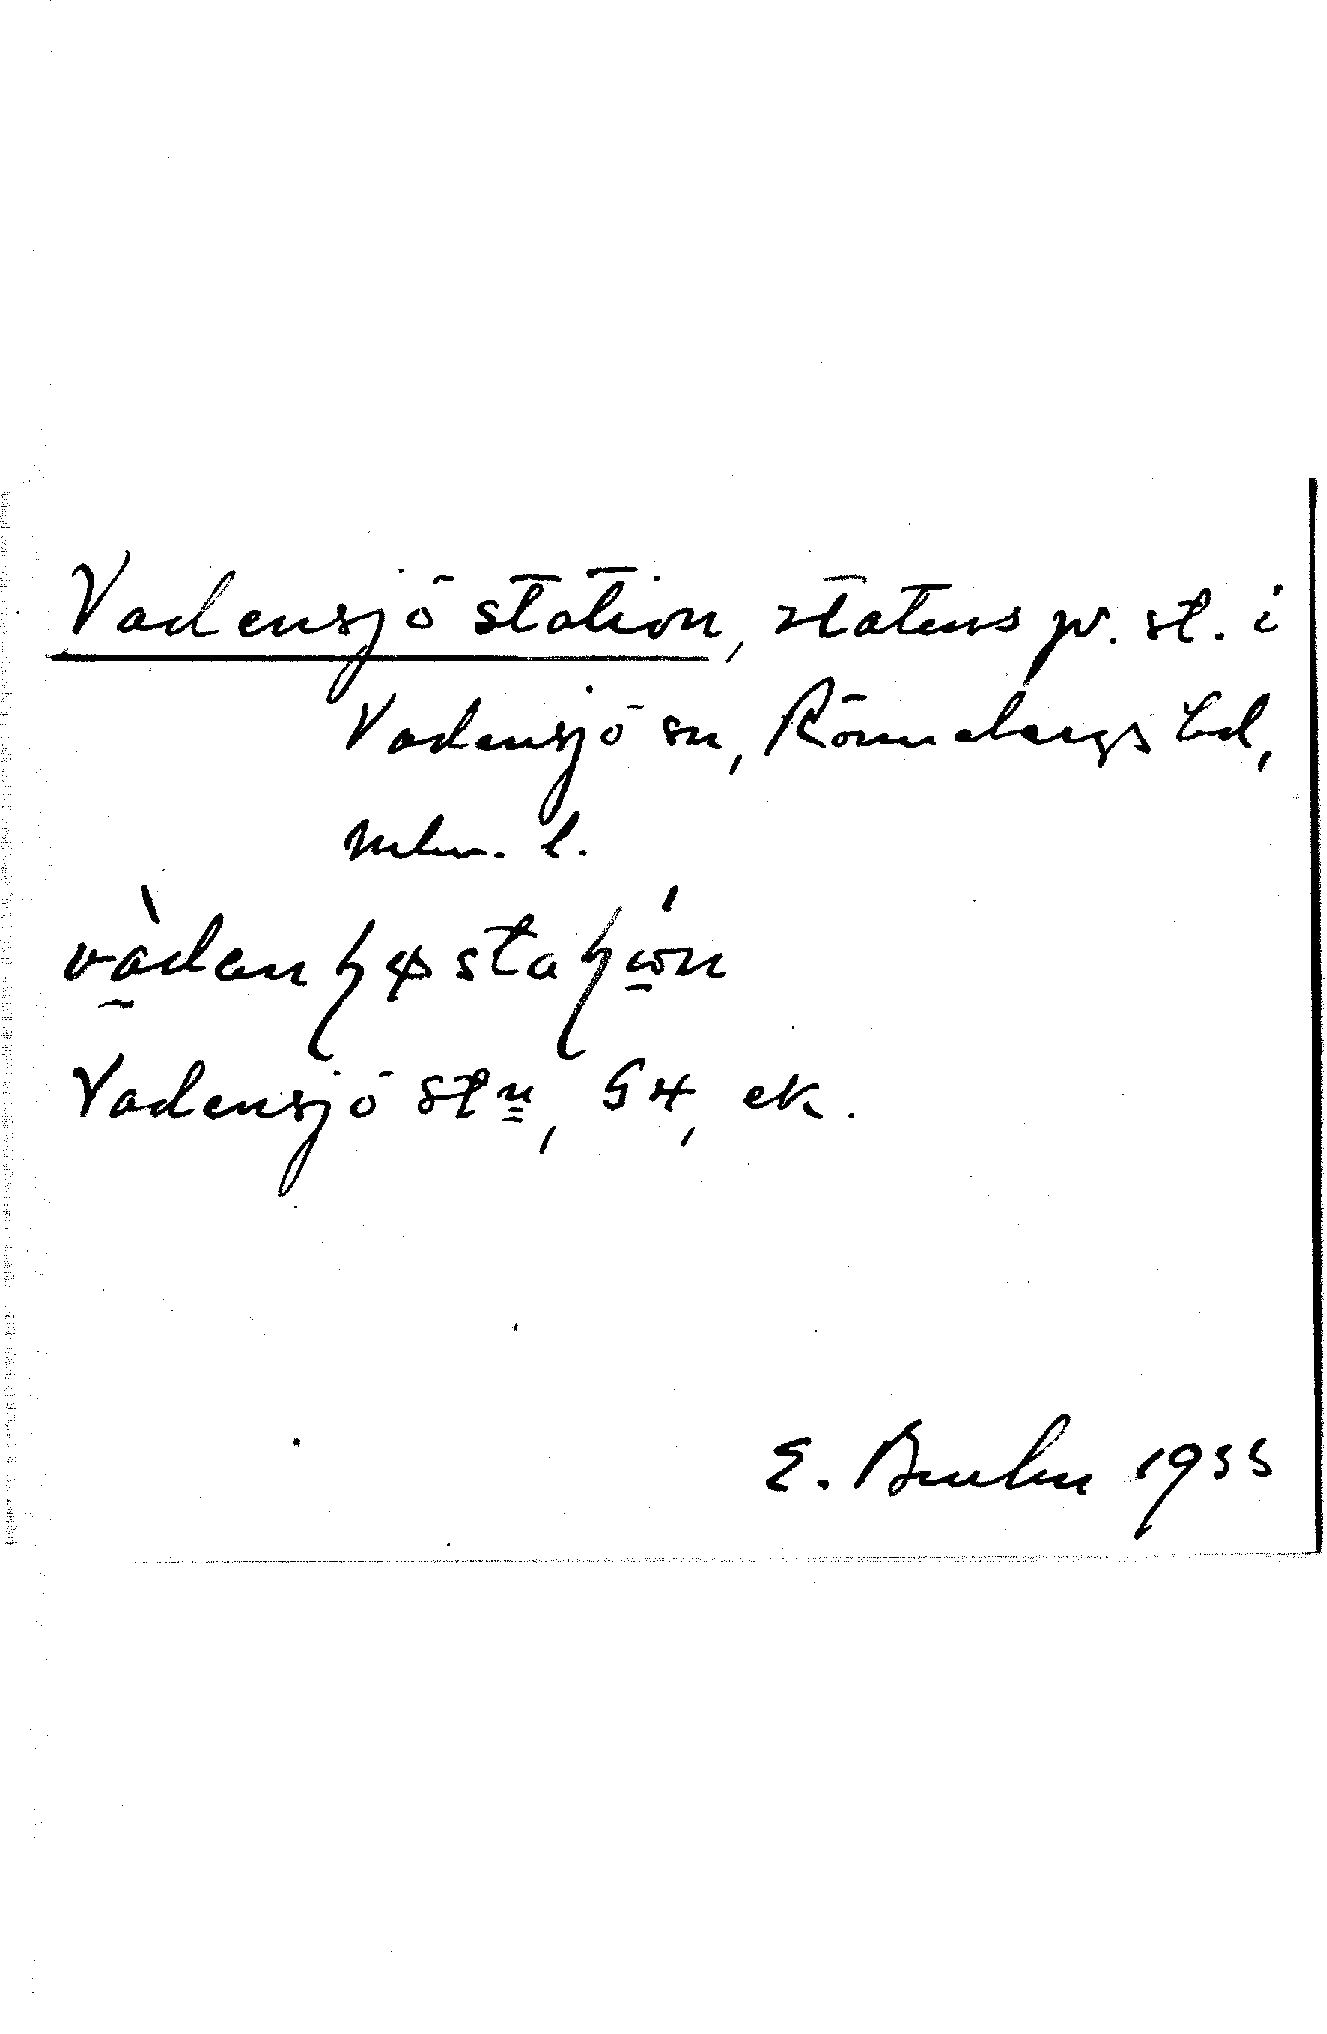 Vadensjö station, statens jv. st. i
Vadensjö sn, Rönnebergs hd,
Mlm. l.
Vadensjö stn, G4, ek.
E. Bruhn 1933